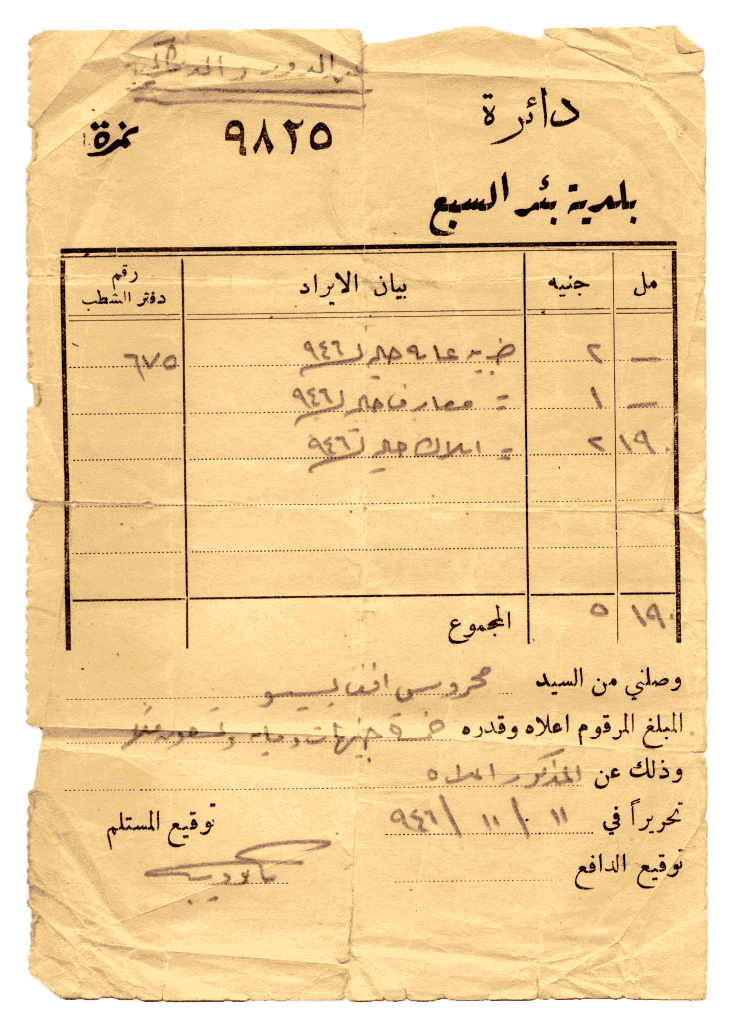 عن الدور و
دائرة
نمرة ٩٨٢٥
بلدية بئر السبع
مل جنيه بيان الايراد رقم دفتر الشطب
— ٢ ضريبة عامة ٩٤٦ ٦٧٥
— ١ = معارف ٩٤٦
١٩٠ ٢ = املاك ٩٤٦
١٩٠ ٥ المجموع
وصلني من السيد محروس افندي بسيسو
المبلغ المرقوم اعلاه وقدره خمسة جنيهات ومايه وتسعون ملا
وذلك عن المذكور اعلاه
تحريراً في ١١ / ١١ / ٩٤٦ توقيع المستلم
توقيع الدافع